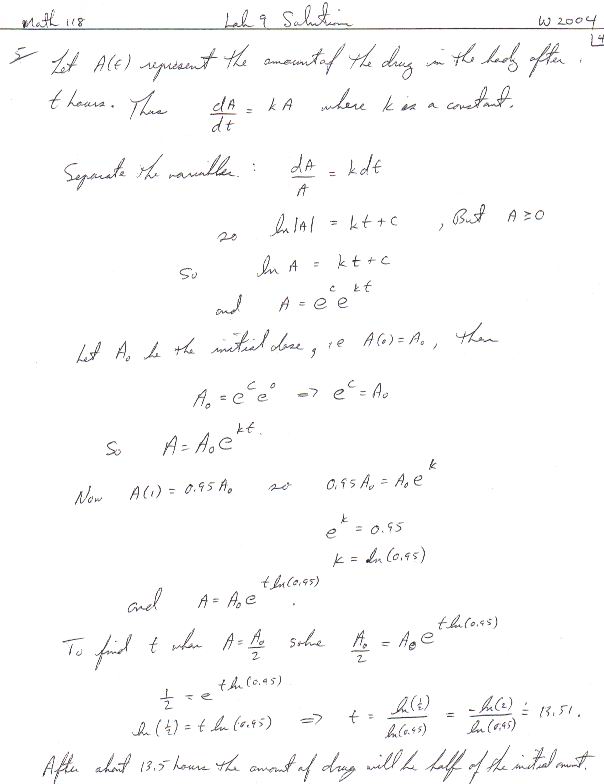 Math 118 Lab 9 Solution W 2004
4
5 Let A(t) represent the amount of the drug in the body after
t hours. Thus dA/dt = kA where k is a constant.
Separate the variables: dA/A = kdt
so ln|A| = kt + c , But A ≥ 0
So ln A = kt + c
and A = e^c e^kt
Let A₀ be the initial dose, ie A(0) = A₀, then
A₀ = e^c e^0 => e^c = A₀
So A = A₀e^kt.
Now A(1) = 0.95A₀ so 0.95A₀ = A₀e^k
e^k = 0.95
k = ln(0.95)
and A = A₀e^(t ln(0.95)).
To find t when A = A₀/2 solve A₀/2 = A₀e^(t ln(0.95))
1/2 = e^(t ln(0.95))
ln(1/2) = t ln(0.95) => t = ln(1/2)/ln(0.95) = -ln(2)/ln(0.95) ≐ 13.51.
After about 13.5 hours the amount of drug will be half of the initial amt.